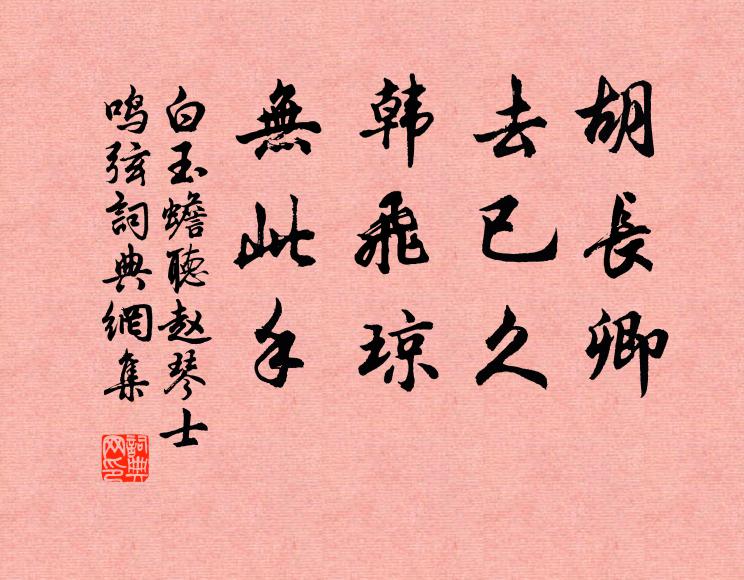 胡長卿
去已久
韩飛琼
無此手
白玉蟾聽赵琴士
鸣弦詞典網集
詞典
网印